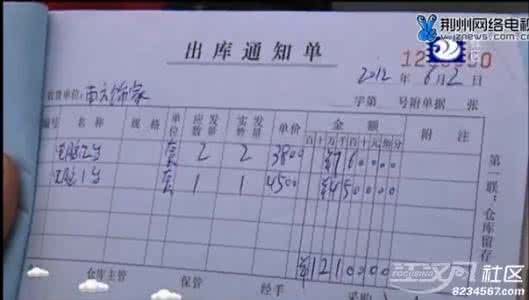 荆州网络电视
出库通知单
2012年6月2日
收货单位:
字第 号附单据 张
编号 名称 规格 单位 应发数量 实发数量 单价 金额 附注
百十万千百十元角分
电脑2台 套 2 2 3800 ¥760000
电脑1台 套 1 1 4500 ¥450000
¥1210000
第一联:仓库留存
仓库主管 保管 经手
江汉网 社区
8234567.com